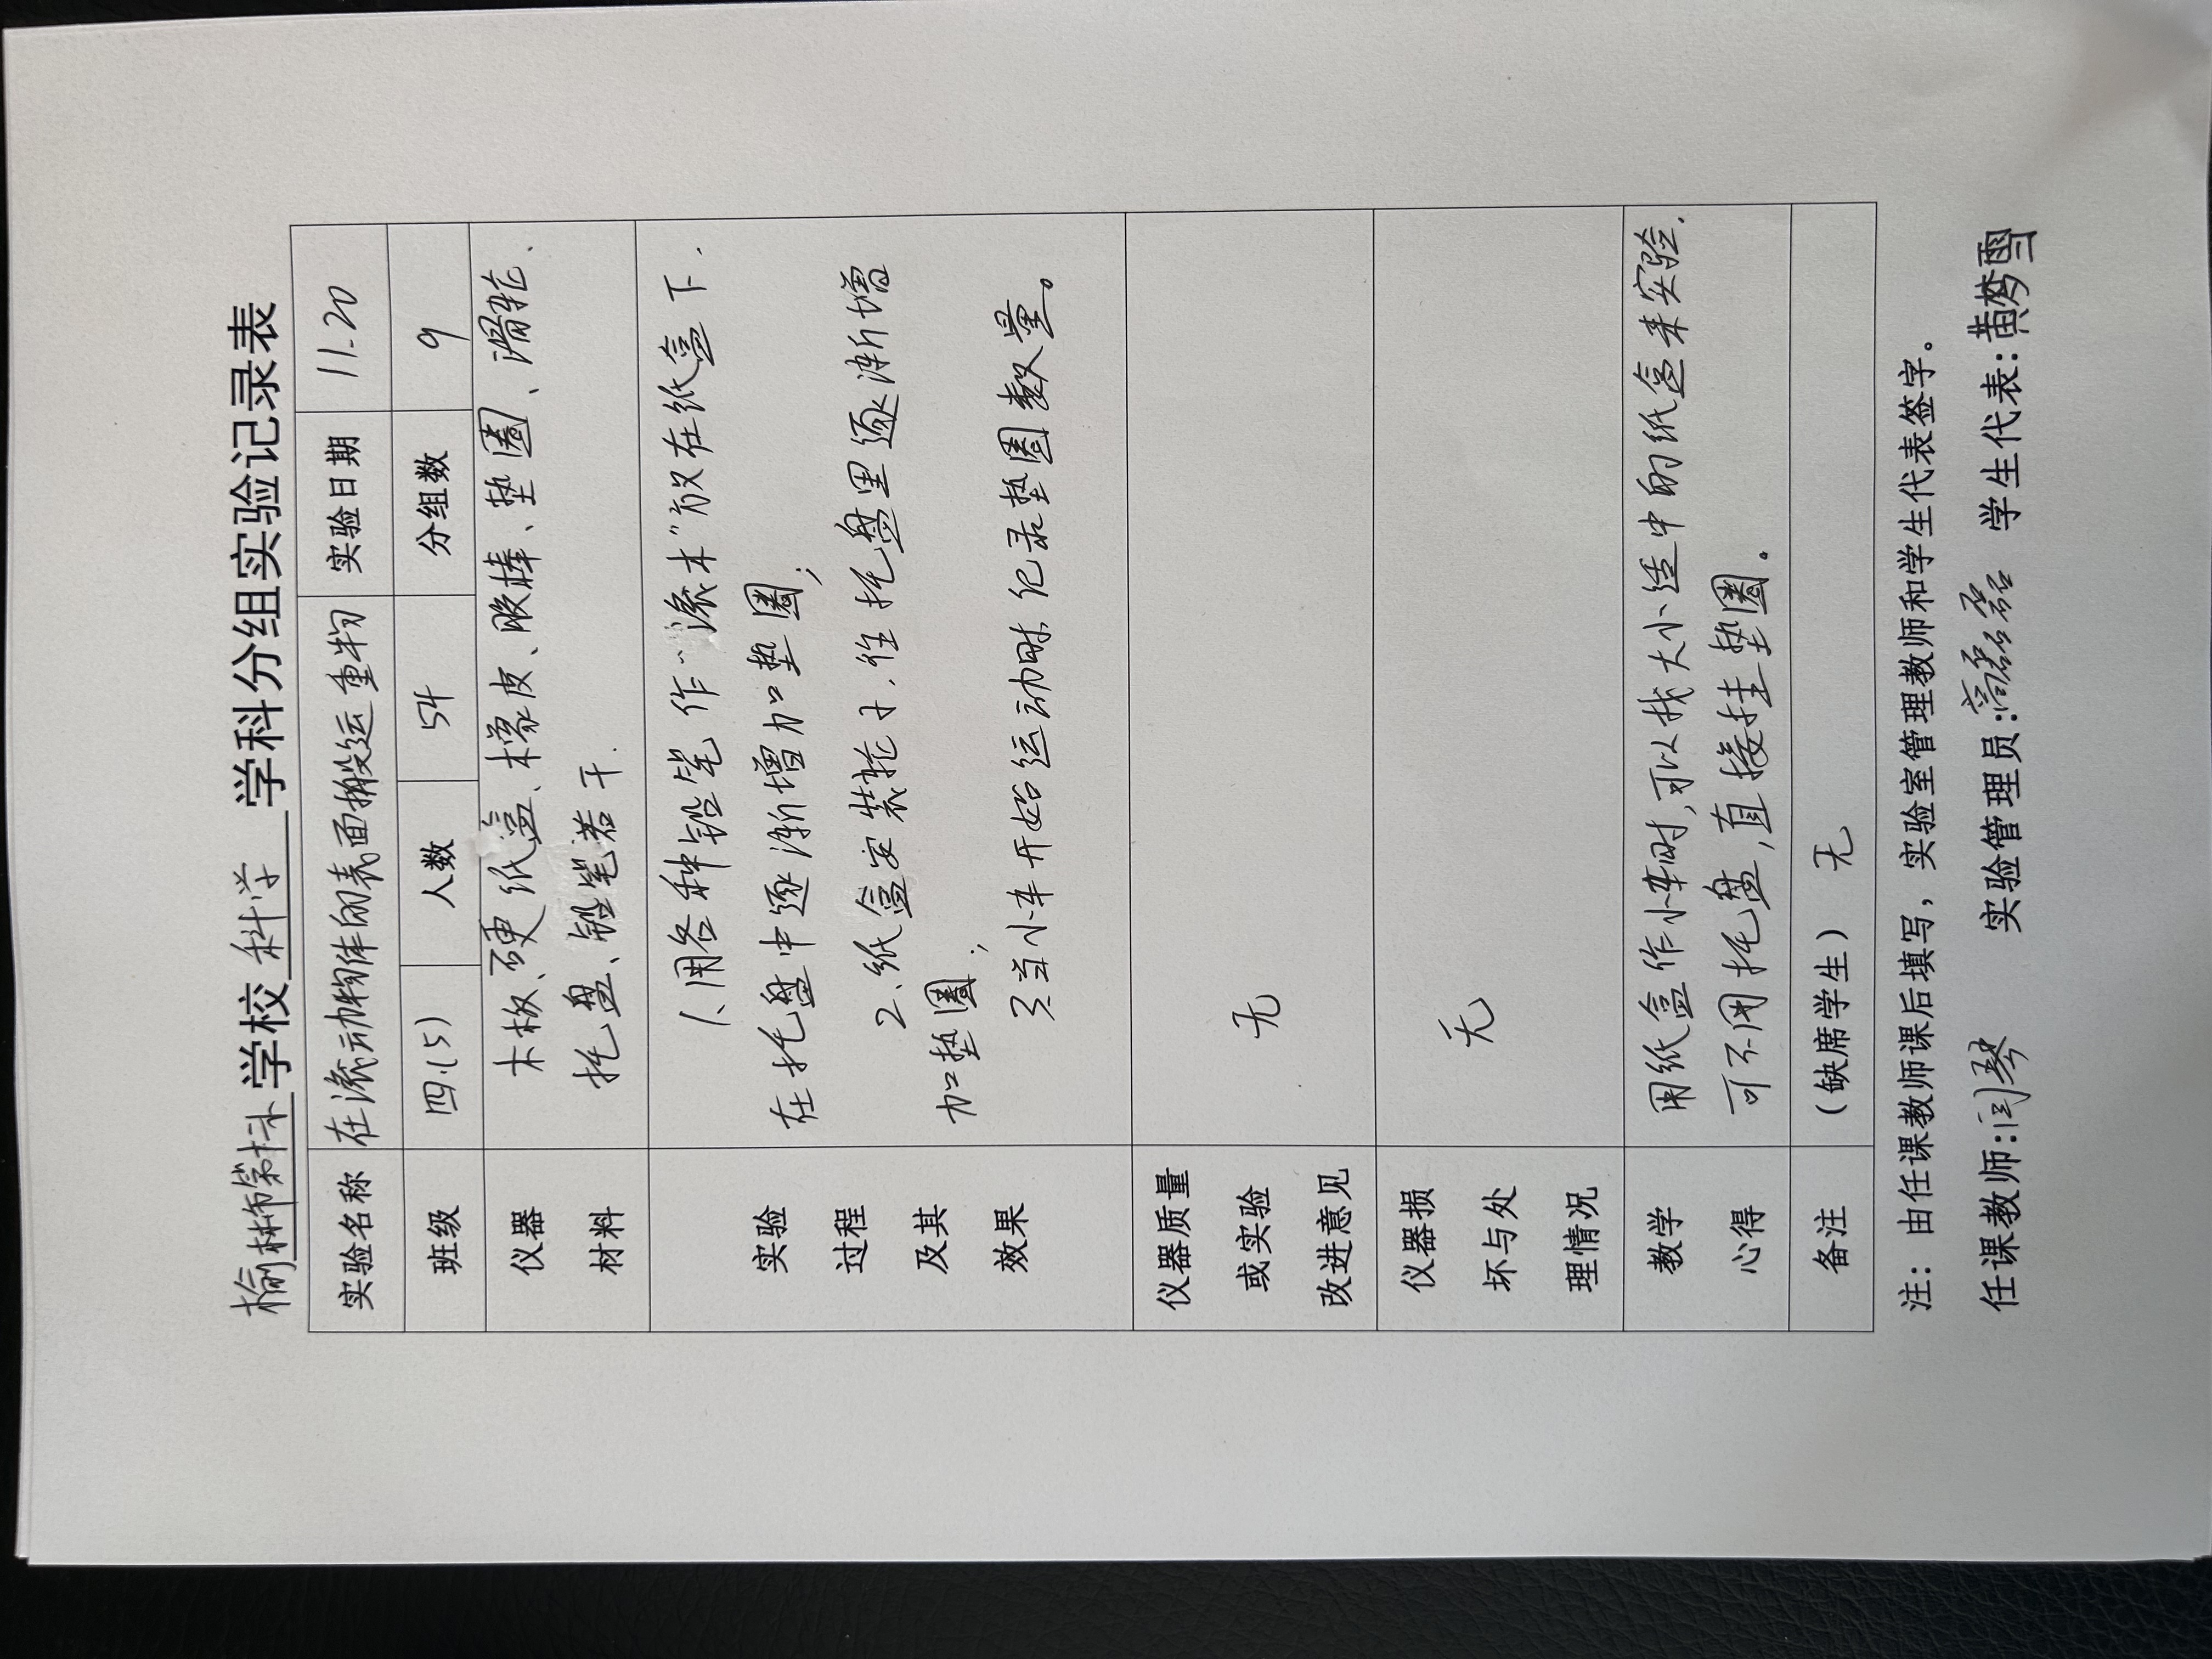 榆林市第十小学校 科学 学科分组实验记录表
实验名称 在滚动物体的表面搬运重物 实验日期 11.20
班级 四(5) 人数 54 分组数 9
仪器材料 木板、硬纸盒、橡皮、胶棒、垫圈、滑轮、
托盘、铅笔若干.
实验过程及其效果 1、用各种铅笔作“滚木”放在纸盒下.
在托盘中逐渐增加垫圈;
2、纸盒安装轮子.往托盘里逐渐增
加垫圈;
3.当小车开始运动时记录垫圈数量。
仪器质量或实验改进意见 无
仪器损坏与处理情况 无
教学心得 用纸盒作小车时,可以找大小适中的纸盒来实验.
可不用托盘,直接挂垫圈。
备注 (缺席学生) 无
注：由任课教师课后填写，实验室管理教师和学生代表签字。
任课教师:闫琴 实验管理员:高磊磊 学生代表:黄梦雪